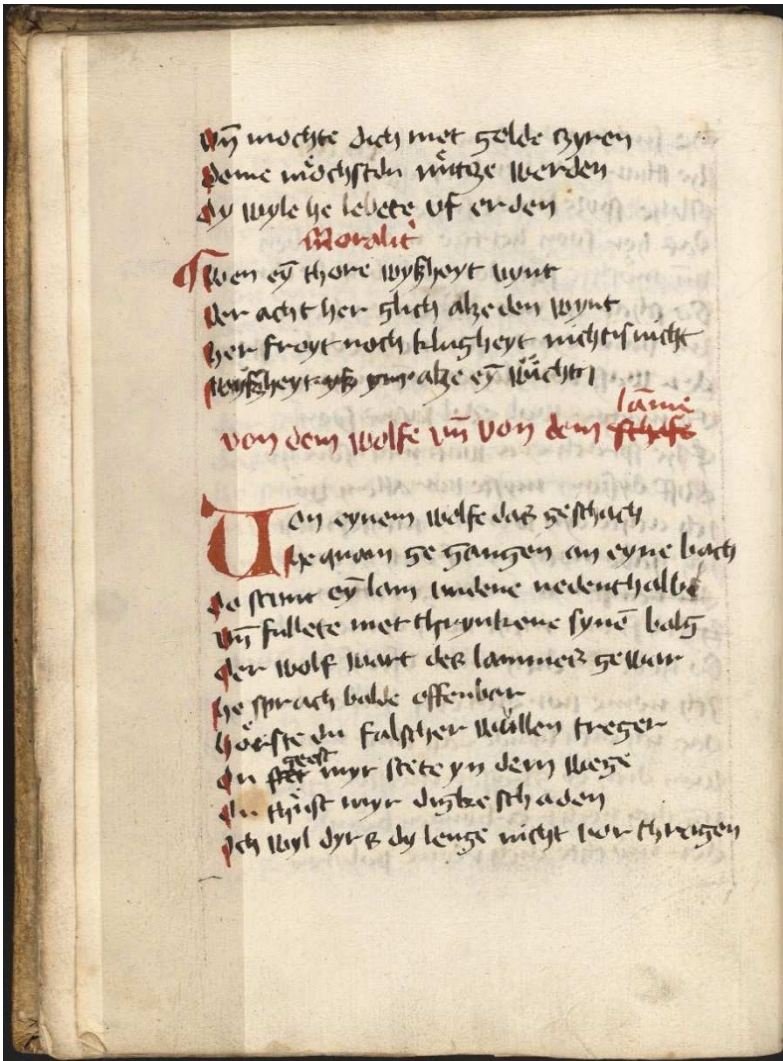 vn̄ mochte dich met gelde czyren
deme mo̊chstdu nu̇tcze werden
dy wyle he lebete vf erden
Moralit̕
wen ey̅ thore wyßheyt vynt
der acht her glich alze den wynt
her froyt noch klugheyt nichtisnicht
wyßheyt yß ym alze ey̅ wücht
von dem wolfe vn̄ von dem schafe lāme
Von eynem wolfe daß geschach
he quam ge gangen an eyne bach
do stunt ey̅ lam undene nedenthalbe
vn̄ fullete met thrynkene synē balg
der wolf wart des lammes gewar
he sprach balde offenbar
hörste du falscher wüllen treger
du stet geest myr stete yn dem wege
du thust myr digke schaden
Ich wyl dyrs dy lenge nicht vor thragen